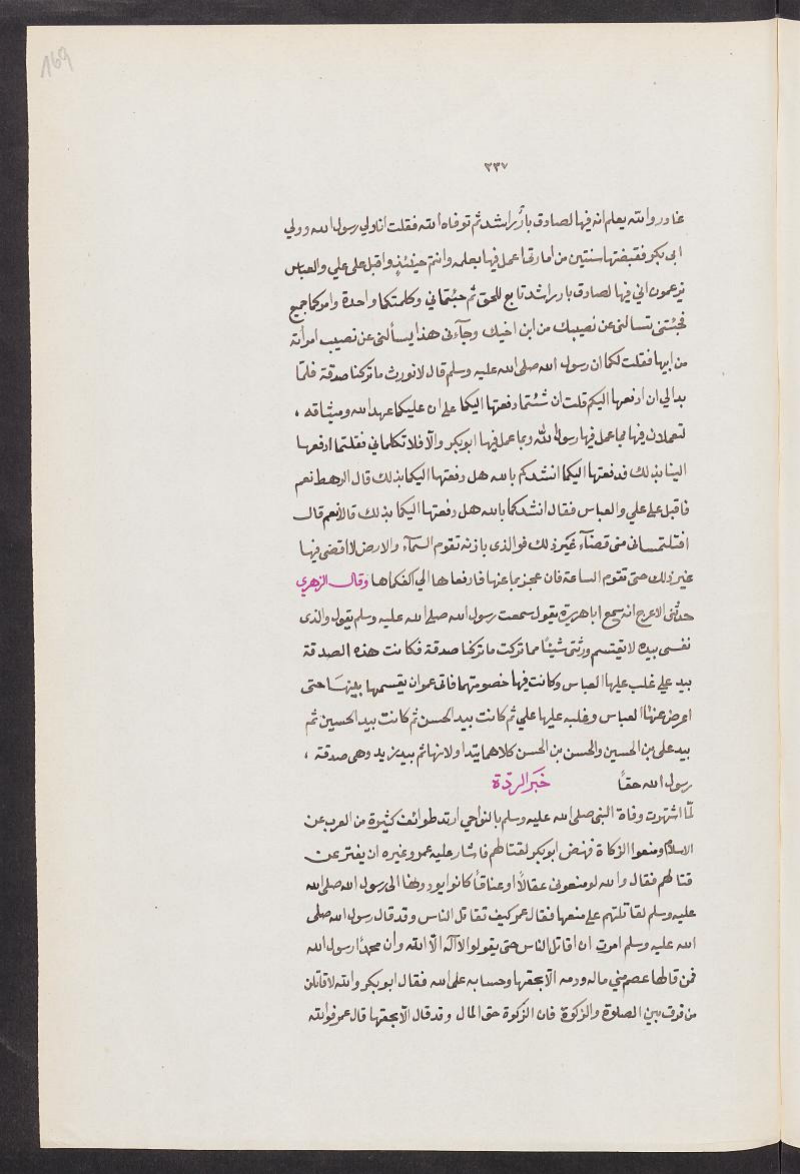 169
٣٣٧
غادر والله يعلم انه فيها لصادق بارّ راشد ثم توفاه الله فقلت انا ولي رسول الله وولي
ابى بكر فقبضتها سنتين من امارتى اعمل فيها بعلمه وانتم حينئذٍ واقبل على علي والعباس
تزعمون اني فيها لصادق بار راشد تابع للحق ثم جئتماني وكلمتكما واحدة وامركما جميع
فجئتنى تسالنى عن نصيبك من ابن اخيك وجآءنى هذا يسألنى عن نصيب امرأته
من ابيها فقلت لكما ان رسول الله صلى الله عليه وسلم قال لا نورث ما تركنا صدقة فلمّا
بدا لي ان ادفعها اليكم قلت ان شئتما دفعتها اليكما على ان عليكما عهد الله وميثاقه ،
لتعملان فيها بما عمل فيها رسول الله وبما عمل فيها ابو بكر والّا فلا تكلماني فقلتما ادفعها
الينا بذلك فدفعتها اليكما انشدكم بالله هل دفعتها اليكما بذلك قال الرهط نعم
فاقبل على علي والعباس فقال انشدكما بالله هل دفعتها اليكما بذلك قالا نعم قال
افتلتمسان منى قضآء غير ذلك فوالذى باذنه تقوم السمآء والارض لا اقضى فيها
غير ذلك حتى تقوم الساعة فان عجزتما عنها فادفعاها الي اكفكماها وقال الزهري
حدثنى الاعرج انه سمع ابا هريرة يقول سمعت رسول الله صلى الله عليه وسلم يقول والذى
نفسى بيده لا يقتسم ورثتى شيئًا مما تركت ما تركنا صدقة فكانت هذه الصدقة
بيد علي غلب عليها العباس وكانت فيها خصومتهما فابى عمر ان يقسمها بينهما حتى
اعرض عنها العباس وغلبه عليها علي ثم كانت بيد الحسن ثم كانت بيد الحسين ثم
بيد على بن الحسين والحسن بن الحسن كلاهما يتداولانها ثم بيد زيد وهى صدقة ،
رسول الله حقًا خبر الردّة
لمّا اشتهرت وفاة النبى صلى الله عليه وسلم بالنواحي ارتد طوائف كثيرة من العرب عن
الاسلام ومنعوا الزكاة فنهض ابو بكر لقتالهم فاشار عليه عمر وغيره ان يفتر عن
قتالهم فقال والله لو منعونى عقالًا او عناقًا كانوا يودونها الى رسول الله صلى الله
عليه وسلم لقاتلتهم على منعها فقال عمر كيف تقاتل الناس وقد قال رسول الله صلى
الله عليه وسلم امرت ان اقاتل الناس حتى يقولوا لا اله الّا الله وان محمدًا رسول الله
فمن قالها عصم مني ماله ودمه الّا بحقها وحسابه على الله فقال ابو بكر والله لاقاتلن
من فرق بين الصلوة والزكوة فان الزكوة حق المال وقد قال الّا بحقها قال عمر فوالله